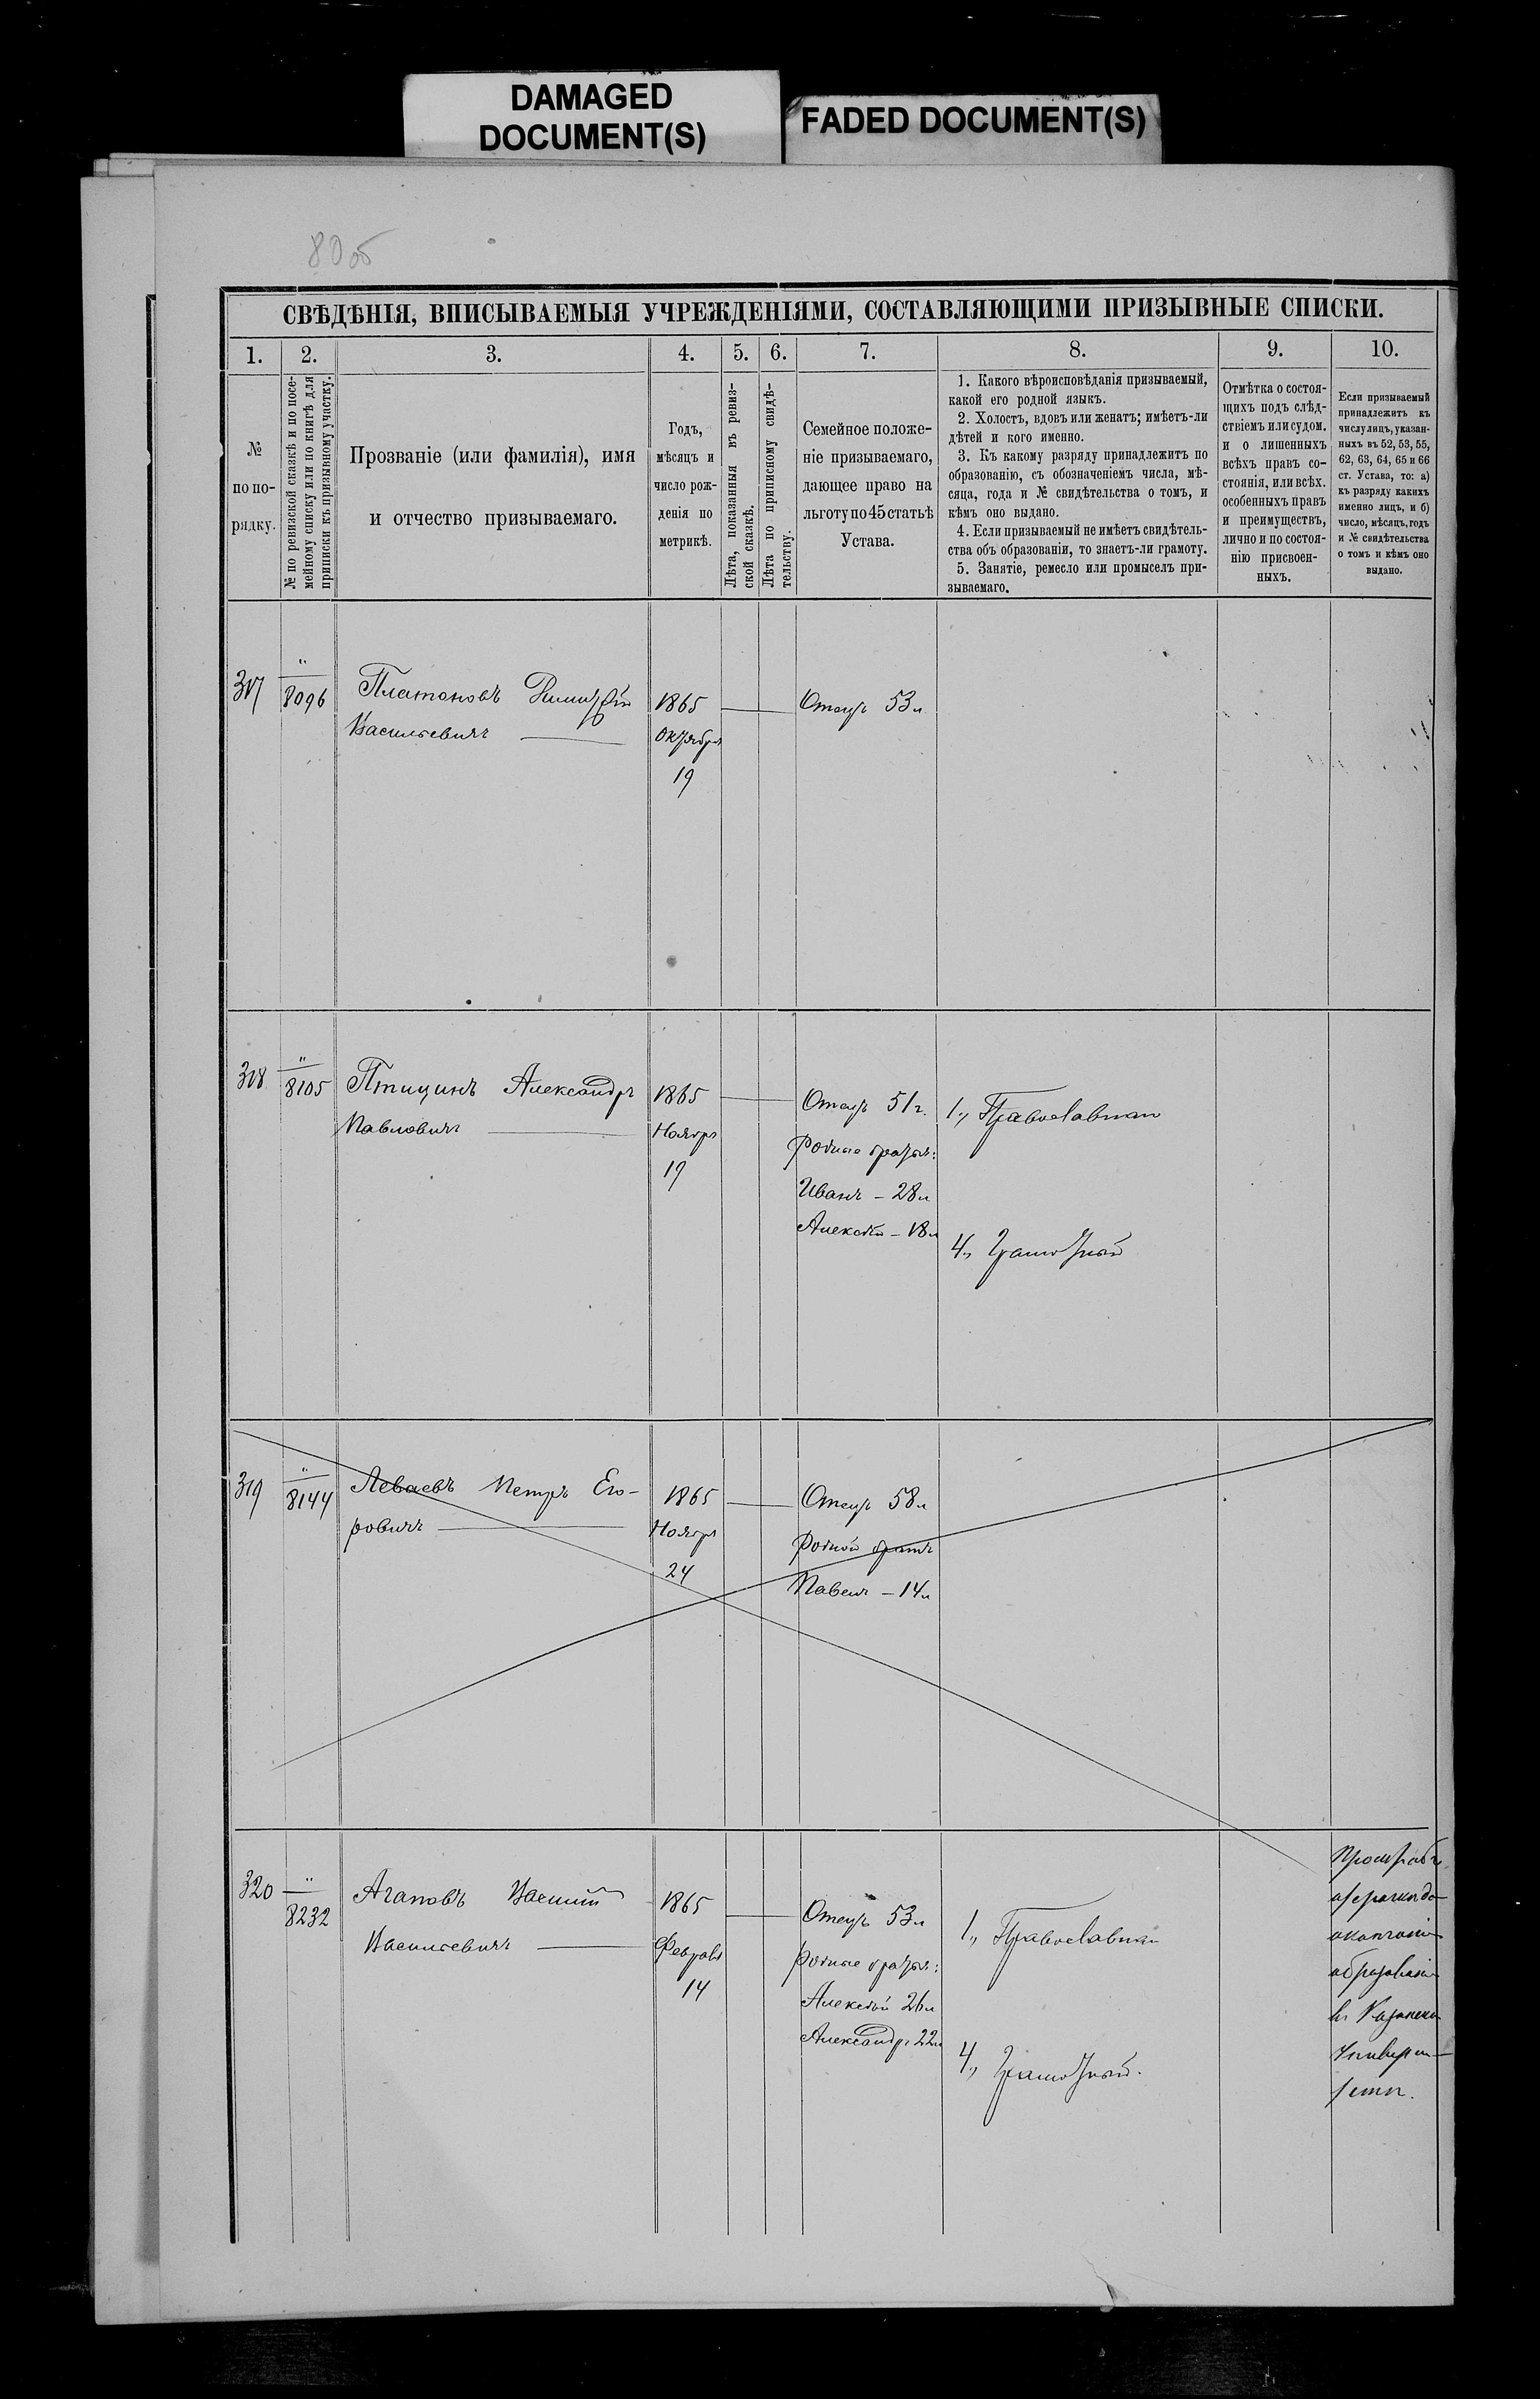 DAMAGED
DOCUMENT(S)
FADED DOCUMENT(S)
80 об
СВѢДѢНІЯ, ВПИСЫВАЕМЫЯ УЧРЕЖДЕНІЯМИ, СОСТАВЛЯЮЩИМИ ПРИЗЫВНЫЕ СПИСКИ.
1. 2. 3. 4. 5. 6. 7. 8. 9. 10.
№
по по-
рядку.
№ по ревизской сказкѣ и по посе-
мейному списку или по книгѣ для
приписки къ призывному участку.
Прозваніе (или фамилія), имя
и отчество призываемаго.
Годъ,
мѣсяцъ и
число рож-
денія по
метрикѣ.
Лѣта, показанныя въ ревиз-
ской сказкѣ.
Лѣта по приписному свидѣ-
тельству.
Семейное положе-
ніе призываемаго,
дающее право на
льготу по 45 статьѣ
Устава.
1. Какого вѣроисповѣданія призываемый,
какой его родной языкъ.
2. Холостъ, вдовъ или женатъ; имѣетъ-ли
дѣтей и кого именно.
3. Къ какому разряду принадлежитъ по
образованію, съ обозначеніемъ числа, мѣ-
сяца, года и № свидѣтельства о томъ, и
кѣмъ оно выдано.
4. Если призываемый не имѣетъ свидѣтель-
ства объ образованіи, то знаетъ-ли грамоту.
5. Занятіе, ремесло или промыселъ при-
зываемаго.
Отмѣтка о состоя-
щихъ подъ слѣд-
ствіемъ или судом.
и о лишенныхъ
всѣхъ правъ со-
стоянія, или всѣх.
особенныхъ правъ
и преимуществъ,
лично и по состоя-
нію присвоен-
ныхъ.
Если призываемый
принадлежитъ къ
числу лицъ, указан-
ныхъ въ 52, 53, 55,
62, 63, 64, 65 и 66
ст. Устава, то: а)
къ разряду какихъ
именно лицъ, и б)
число, мѣсяцъ, годъ
и № свидѣтельства
о томъ и кѣмъ оно
выдано.
317 " 8096 Платоновъ Димитрій 1865 Отецъ 53 л
Васильевичъ Октября
19
318 " 8105 Птицинъ Александръ 1865 Отецъ 51 г. 1., Православнаго
Павловичъ Ноября Родные братья:
19 Иванъ – 28 л
Алексѣй – 18 л
4., Грамотный
319 " 8144 Леваевъ Петръ Его- 1865 Отецъ 58 л
ровичъ Ноября Родной братъ
24 Павелъ – 14 л
320 " 8232 Агаповъ Василій 1865 Отецъ 53 л 1., Православнаго
Васильевичъ Февраля Родные братья:
14 Алексѣй 26 л
Александръ 22 л
4., Грамотный.
отсрочки до
окончанія
образованія
въ Казанском
Универси-
тетѣ.